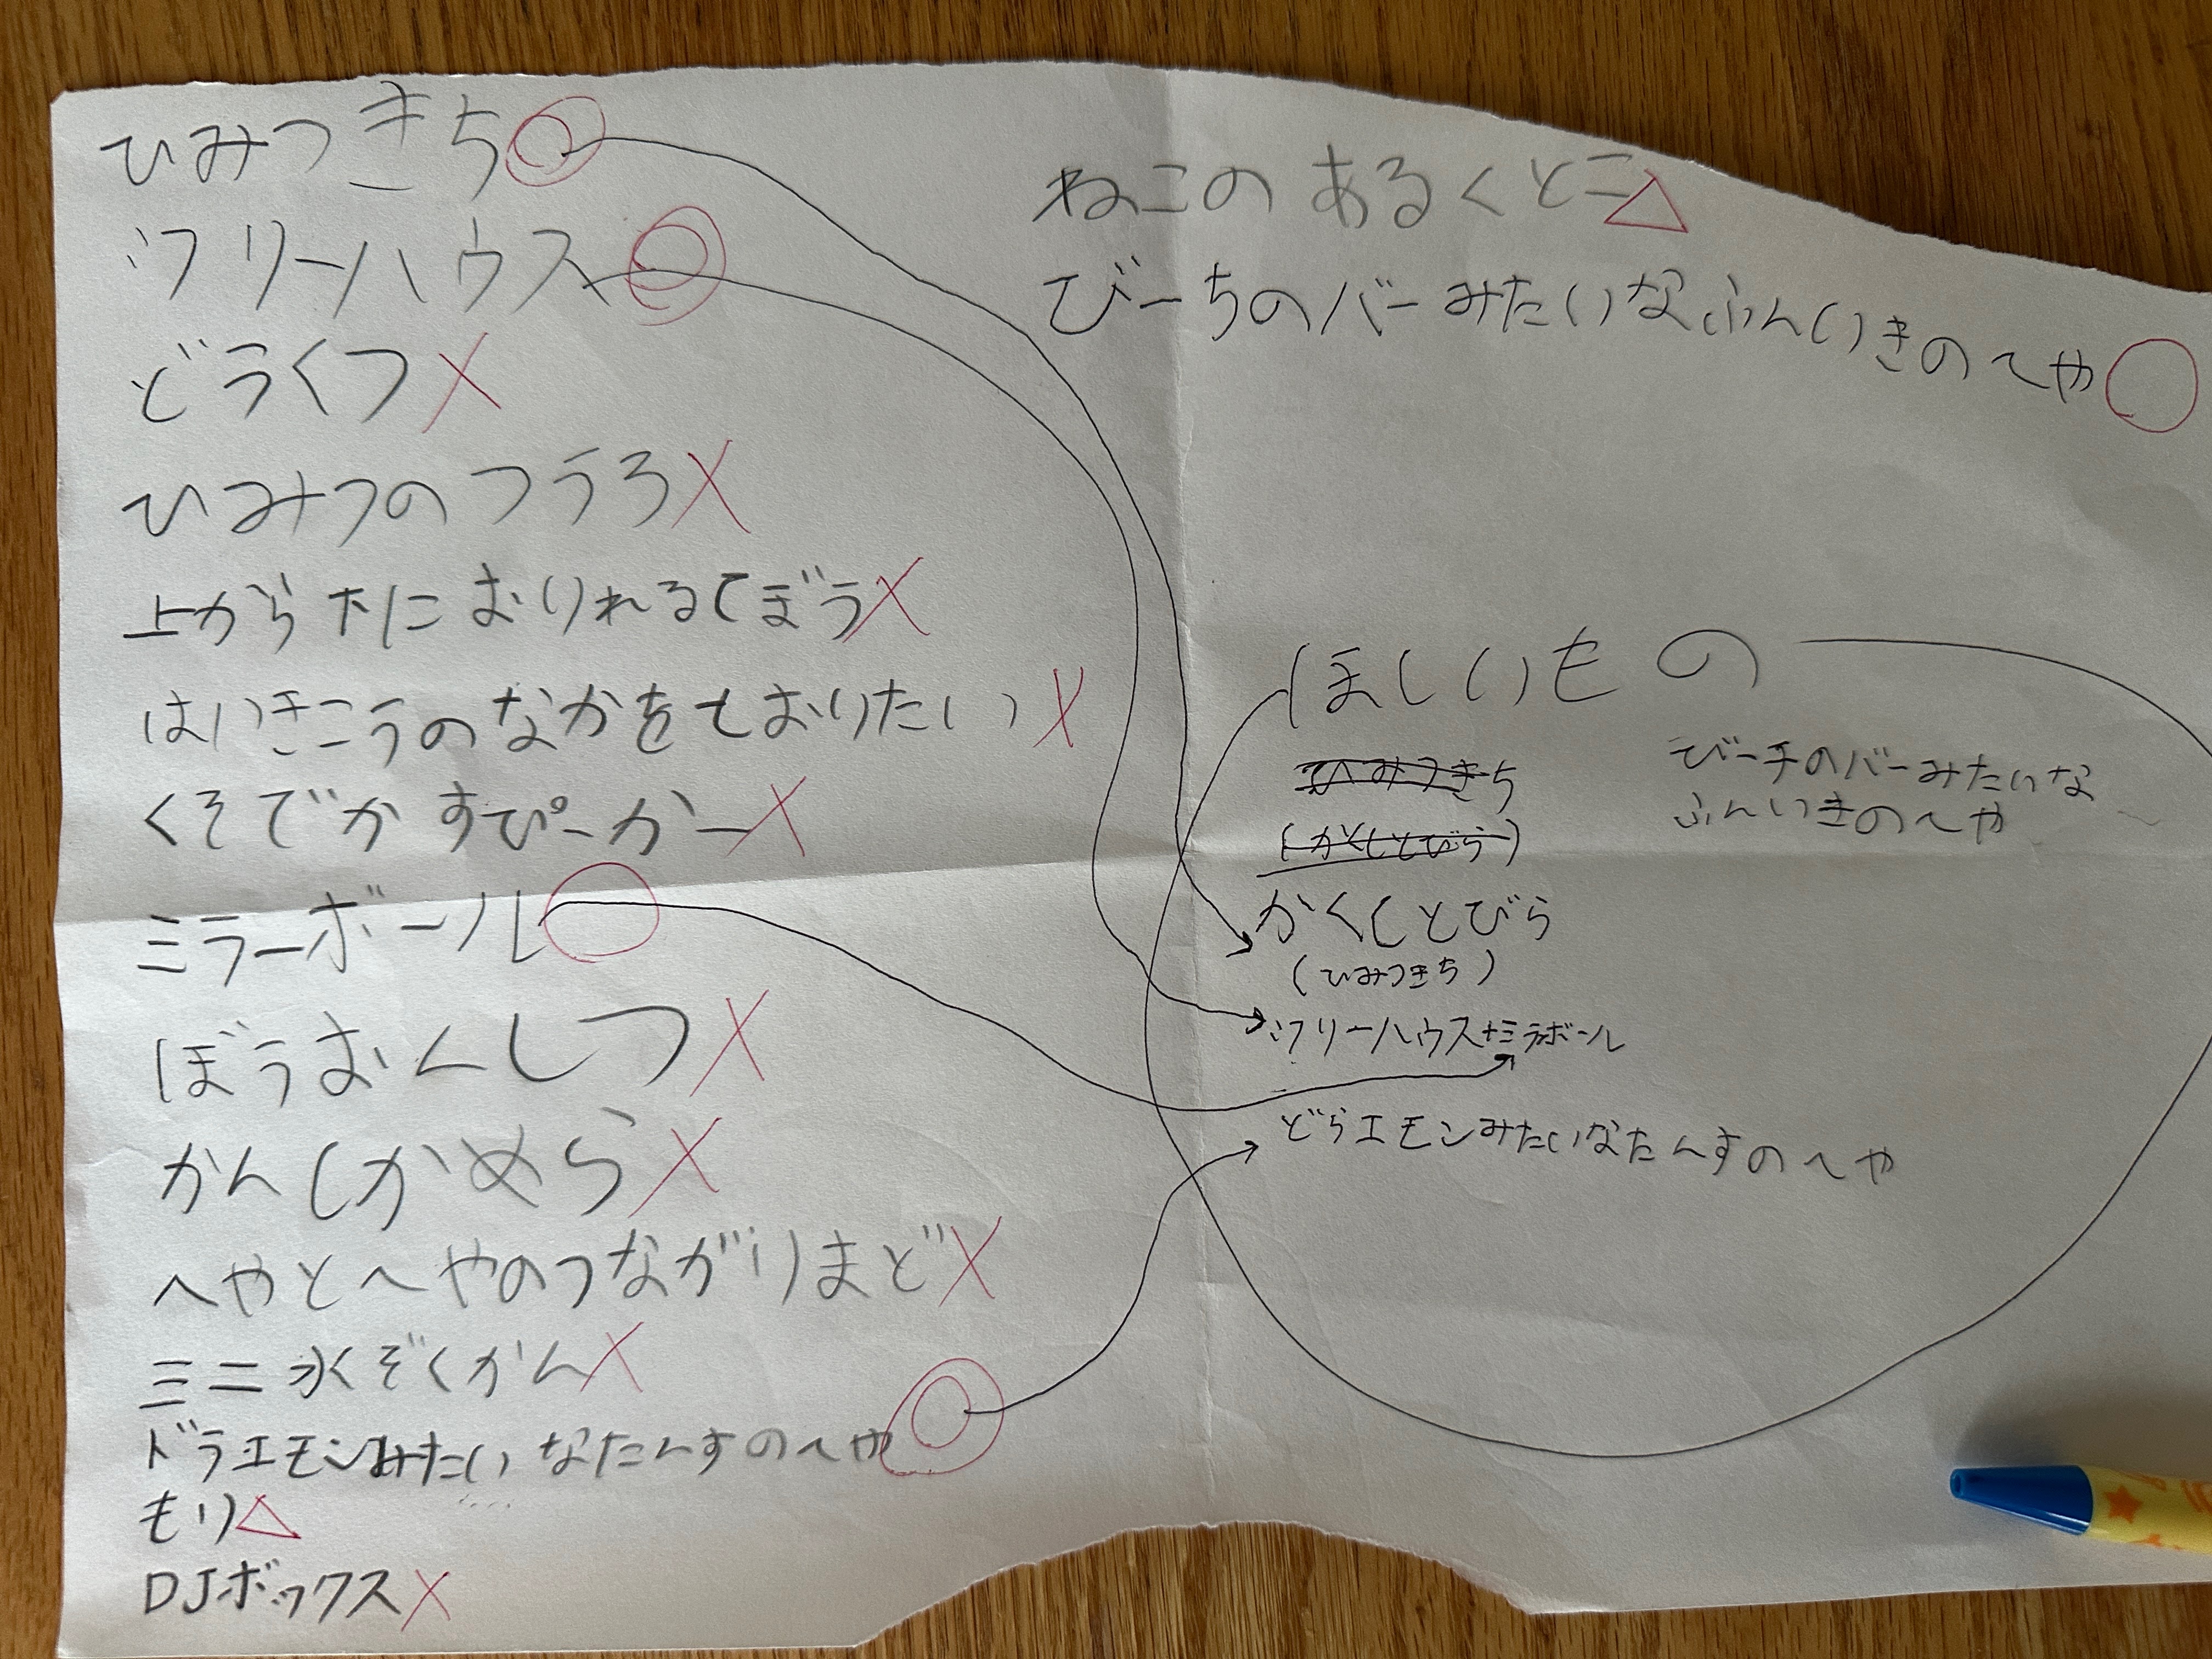 ひみつきち◎
ツリーハウス◎
どうくつ×
ひみつのつうろ×
上から下におりれるてぼう×
はいきこうのなかをとおりたい×
くそでかすぴーかー×
ミラーボール○
ぼうおんしつ×
かんしかめら×
へやとへやのつながりまど×
ミニ水ぞくかん×
ドラエモンみたいなたんすのへや◎
もり△
DJボックス×
ねこのあるくとこ△
びーちのバーみたいなふんいきのへや○
ほしいもの
ひみつきち
(かくしとびら)
かくしとびら
(ひみつきち)
ツリーハウス+ミラボール
どらエモンみたいなたんすのへや
びーチのバーみたいな
ふんいきのへや